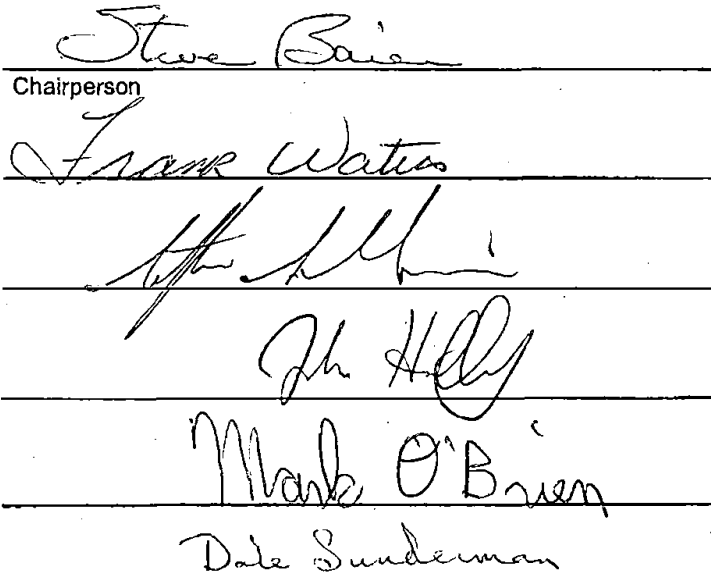 Steve Baier
Chairperson
Frank Waters
John
Mark O'Brien
Dale Sunderman